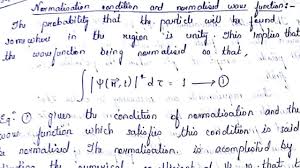 Normalisation condition and normalised wave function:-
The probability that the particle will be found
somewhere in the region is unity. This implies that
the wavefunction being normalised so that,
∫|Ψ(r,t)|² dτ = 1 ⟶ ①
Eqⁿ ① gives the condition of normalisation and the
wave function which satisfies this condition is said
to normalised. The normalisation is acomplished by
the numerical of is that